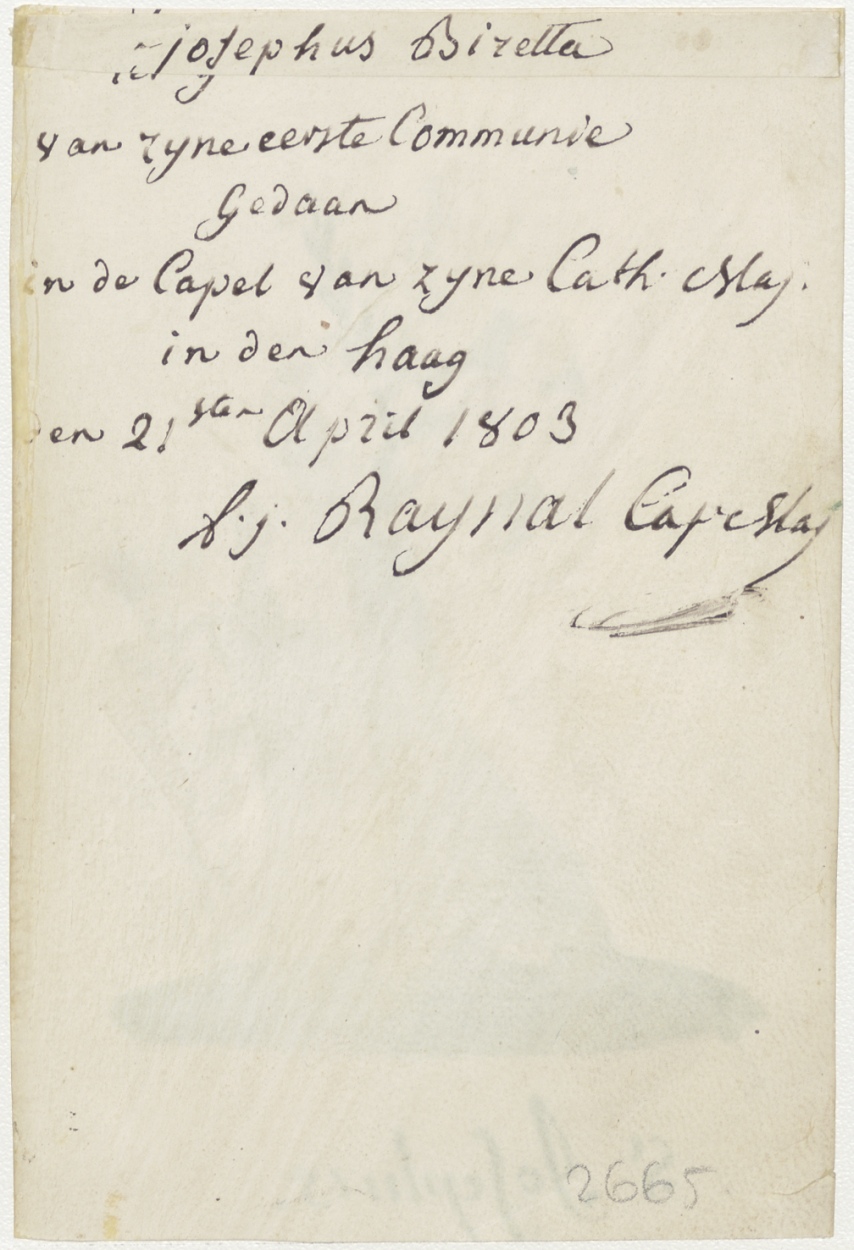 Josephus Bizetta
van zyne eerste Communie
Gedaan
in de Capel van zyne Cath. Maj.
in den haag
den 21sten April 1803
Raynal Cap: Maj
2665